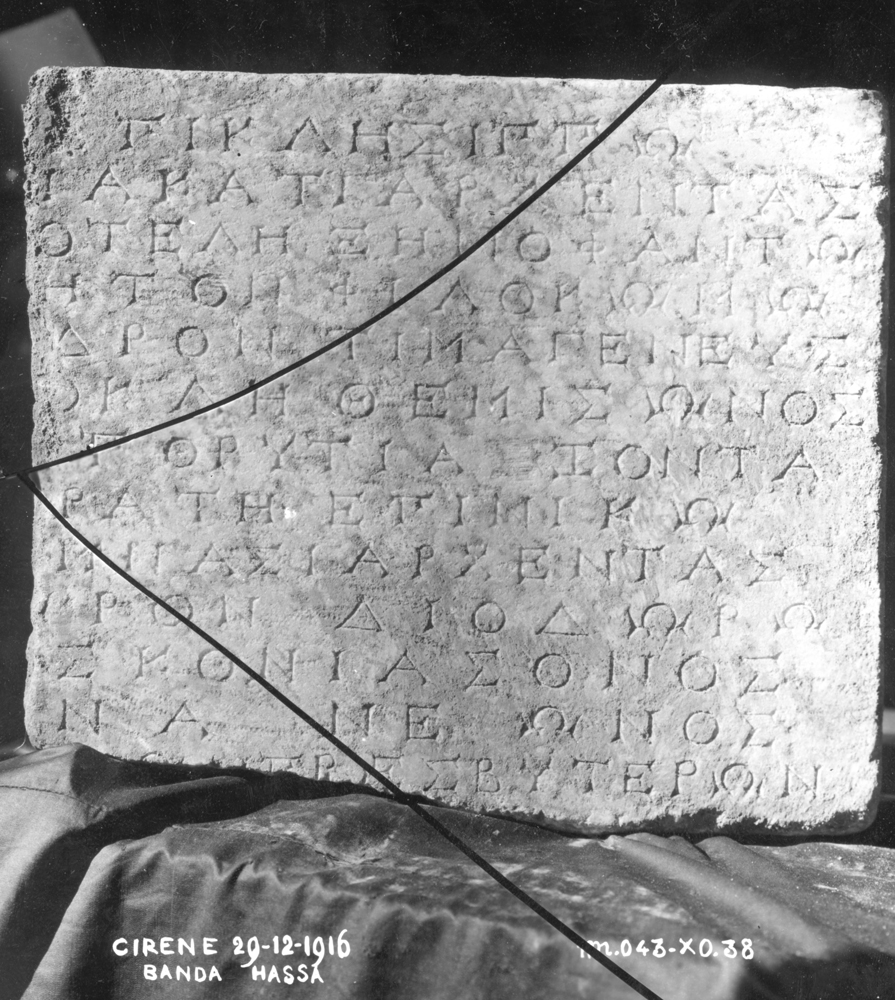 ΠΙΚΛΗΣΙΠΠΩ
ΙΑΚΑΤΙΑΡΧΕΝΤΑΣ
ΟΤΕΛΗ ΞΗΝΟΦΑΝΤΩ
ΗΤΟΝ ΦΙΛΟΚΩΜΩ
ΔΡΟΝ ΤΙΜΑΓΕΝΕΥΣ
ΟΚΛΗ ΘΕΜΙΣΩΝΟΣ
ΠΟΡΥΤΙΑΞΟΝΤΑ
ΡΑΤΗ ΕΠΙΝΙΚΩ
ΜΝΑΣΙΑΡΧΕΝΤΑΣ
ΡΟΝ ΔΙΟΔΩΡΩ
ΣΚΟΝ ΙΑΣΟΝΟΣ
ΝΑ ΝΕΩΝΟΣ
ΠΡΕΣΒΥΤΕΡΩΝ
CIRENE 29-12-1916
BANDA HASSA
m.043-X0.38